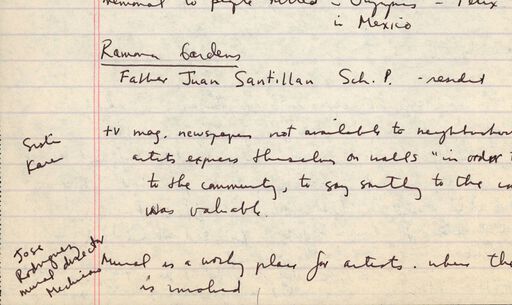 memorial to people killed
in Mexico
Ramona Gardens
Father Juan Santillan Sch. P. - resident
Sister
Karen
tv mag. newspapers not available to neighborhood
artists express themselves on walls "in order
to the community, to say something to the
was valuable.
Jose
Rodriguez
mural director
Mechicano
Mural is a working place for artists. where the
is involved